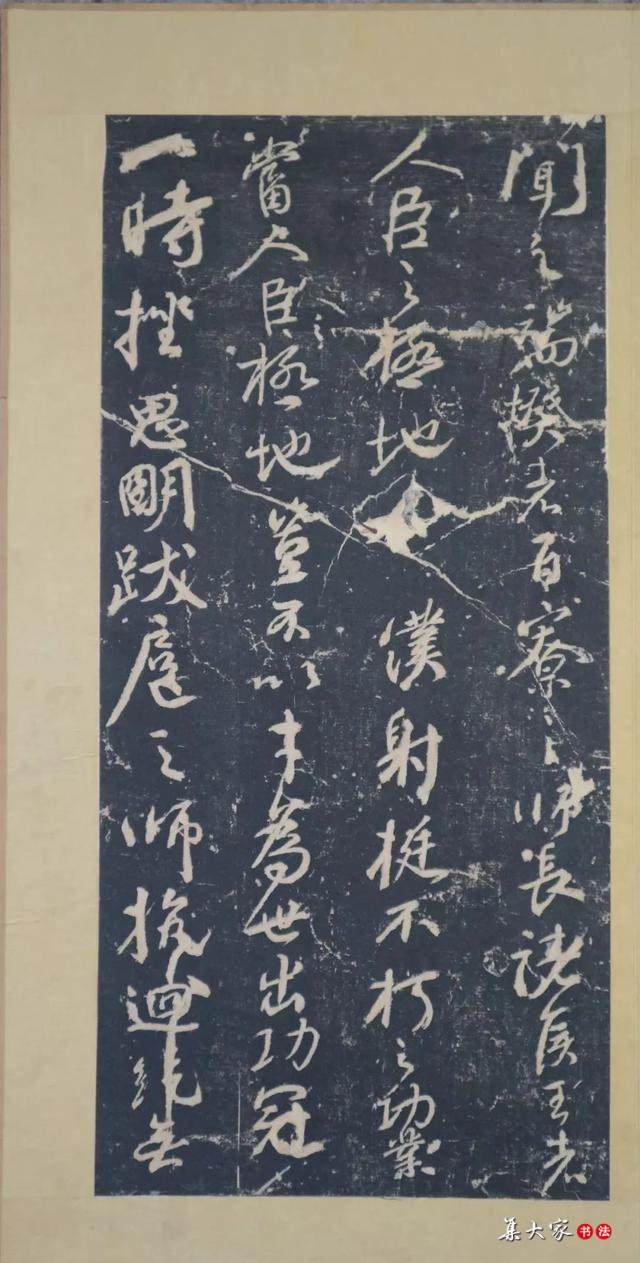 聞之端揆者百寮之師長諸侯王者
人臣之極地 僕射挺不朽之功業
當人臣極地豈不以才為世出功冠
一時挫思明跋扈之師抗迴紇無
集大家书法